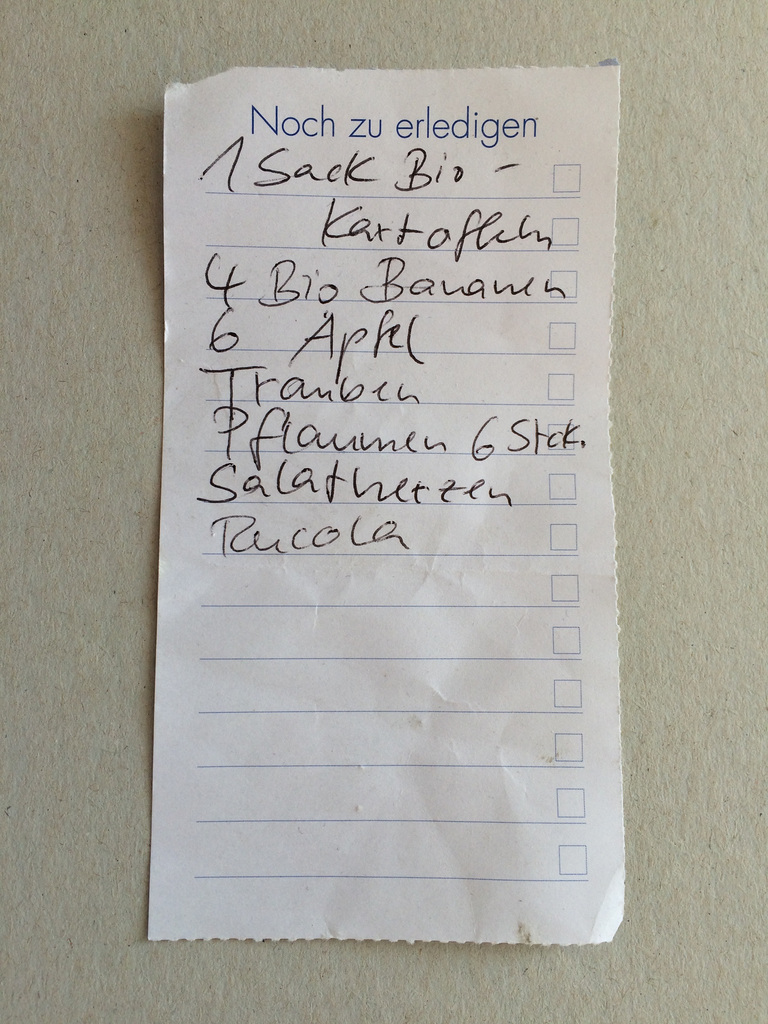 Noch zu erledigen
1 Sack Bio-
Kartoffeln
4 Bio Bananen
6 Äpfel
Trauben
Pflaumen 6 Stck.
Salatherzen
Rucola